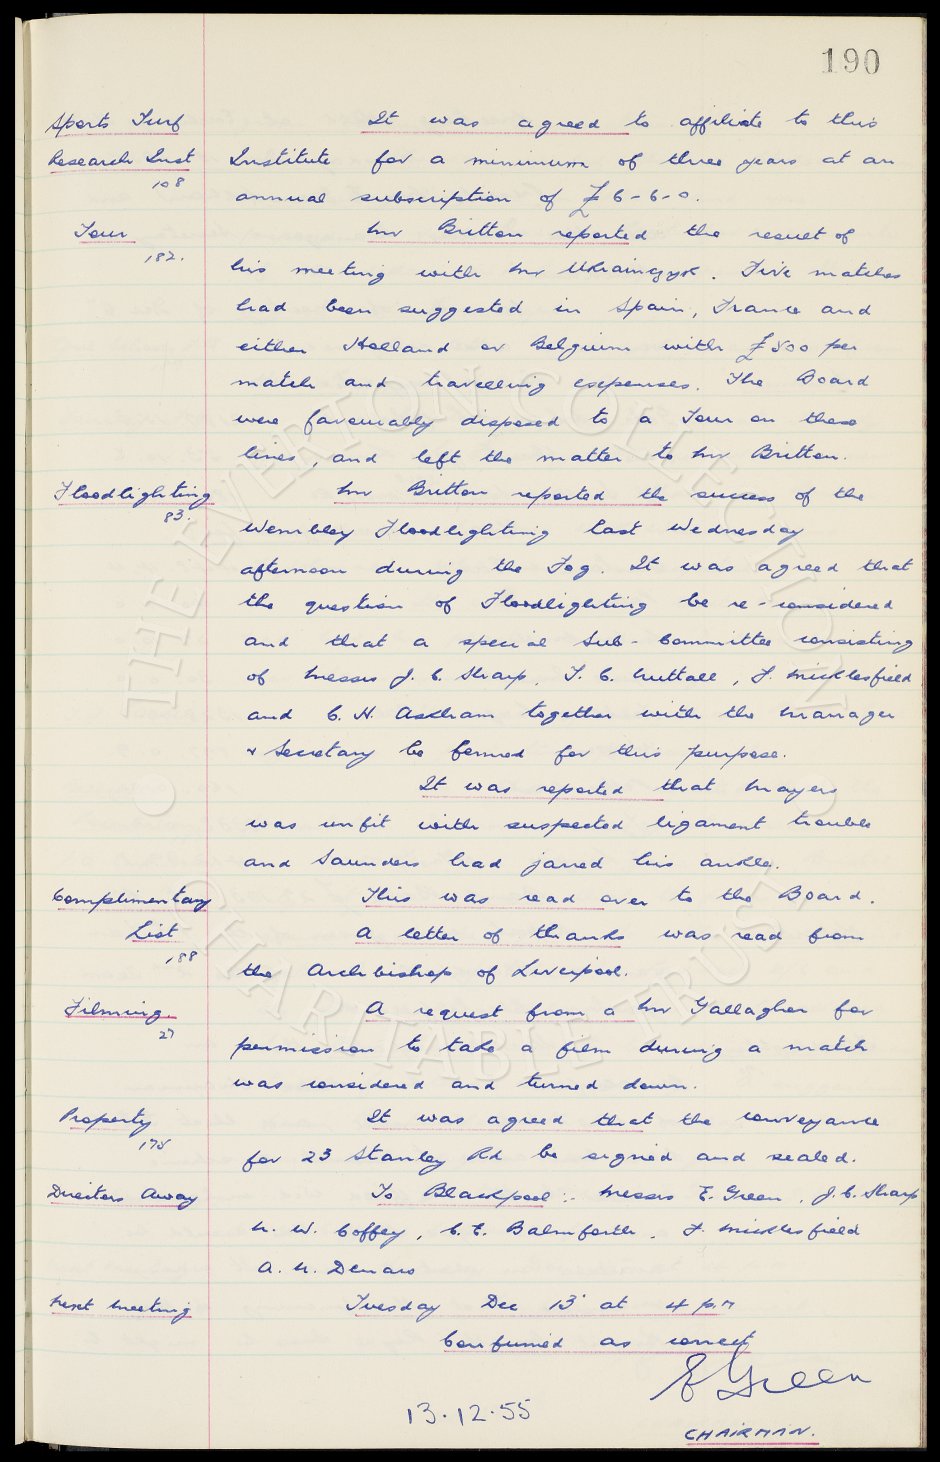 190
Sports Turf It was agreed to affiliate to this
Research Inst Institute for a minimum of three years at an
108
annual subscription of £6-6-0.
Tour Mr Britton reported the result of
182.
his meeting with Mr Ukrainczyk. Five matches
had been suggested in Spain, France and
either Holland or Belgium with £500 per
match and travelling expenses. The Board
were favourably disposed to a Tour on these
lines, and left the matter to Mr Britton.
Floodlighting Mr Britton reported the success of the
83.
Wembley Floodlighting last Wednesday
afternoon during the Fog. It was agreed that
the question of Floodlighting be re-considered
and that a special Sub-Committee consisting
of Messrs J. C. Sharp, T. C. Nuttall, F. Micklesfield
and C. H. Askham together with the Manager
& Secretary be formed for this purpose.
It was reported that Mayers
was unfit with suspected ligament trouble
and Saunders had jarred his ankle.
Complimentary This was read over to the Board.
List A letter of thanks was read from
188
the Archbishop of Liverpool.
Filming. A request from a Mr Gallagher for
27
permission to take a film during a match
was considered and turned down.
Property It was agreed that the conveyance
175
for 23 Stanley Rd be signed and sealed.
Directors Away To Blackpool :- Messrs E. Green, J. C. Sharp
N. W. Coffey, C. E. Balmforth, F. Micklesfield
A. N. Denaro
Next Meeting Tuesday Dec 13 at 4 p.m
Confirmed as correct
E Green
13.12.55
CHAIRMAN.
THE EVERTON COLLECTION
CHARITABLE TRUST